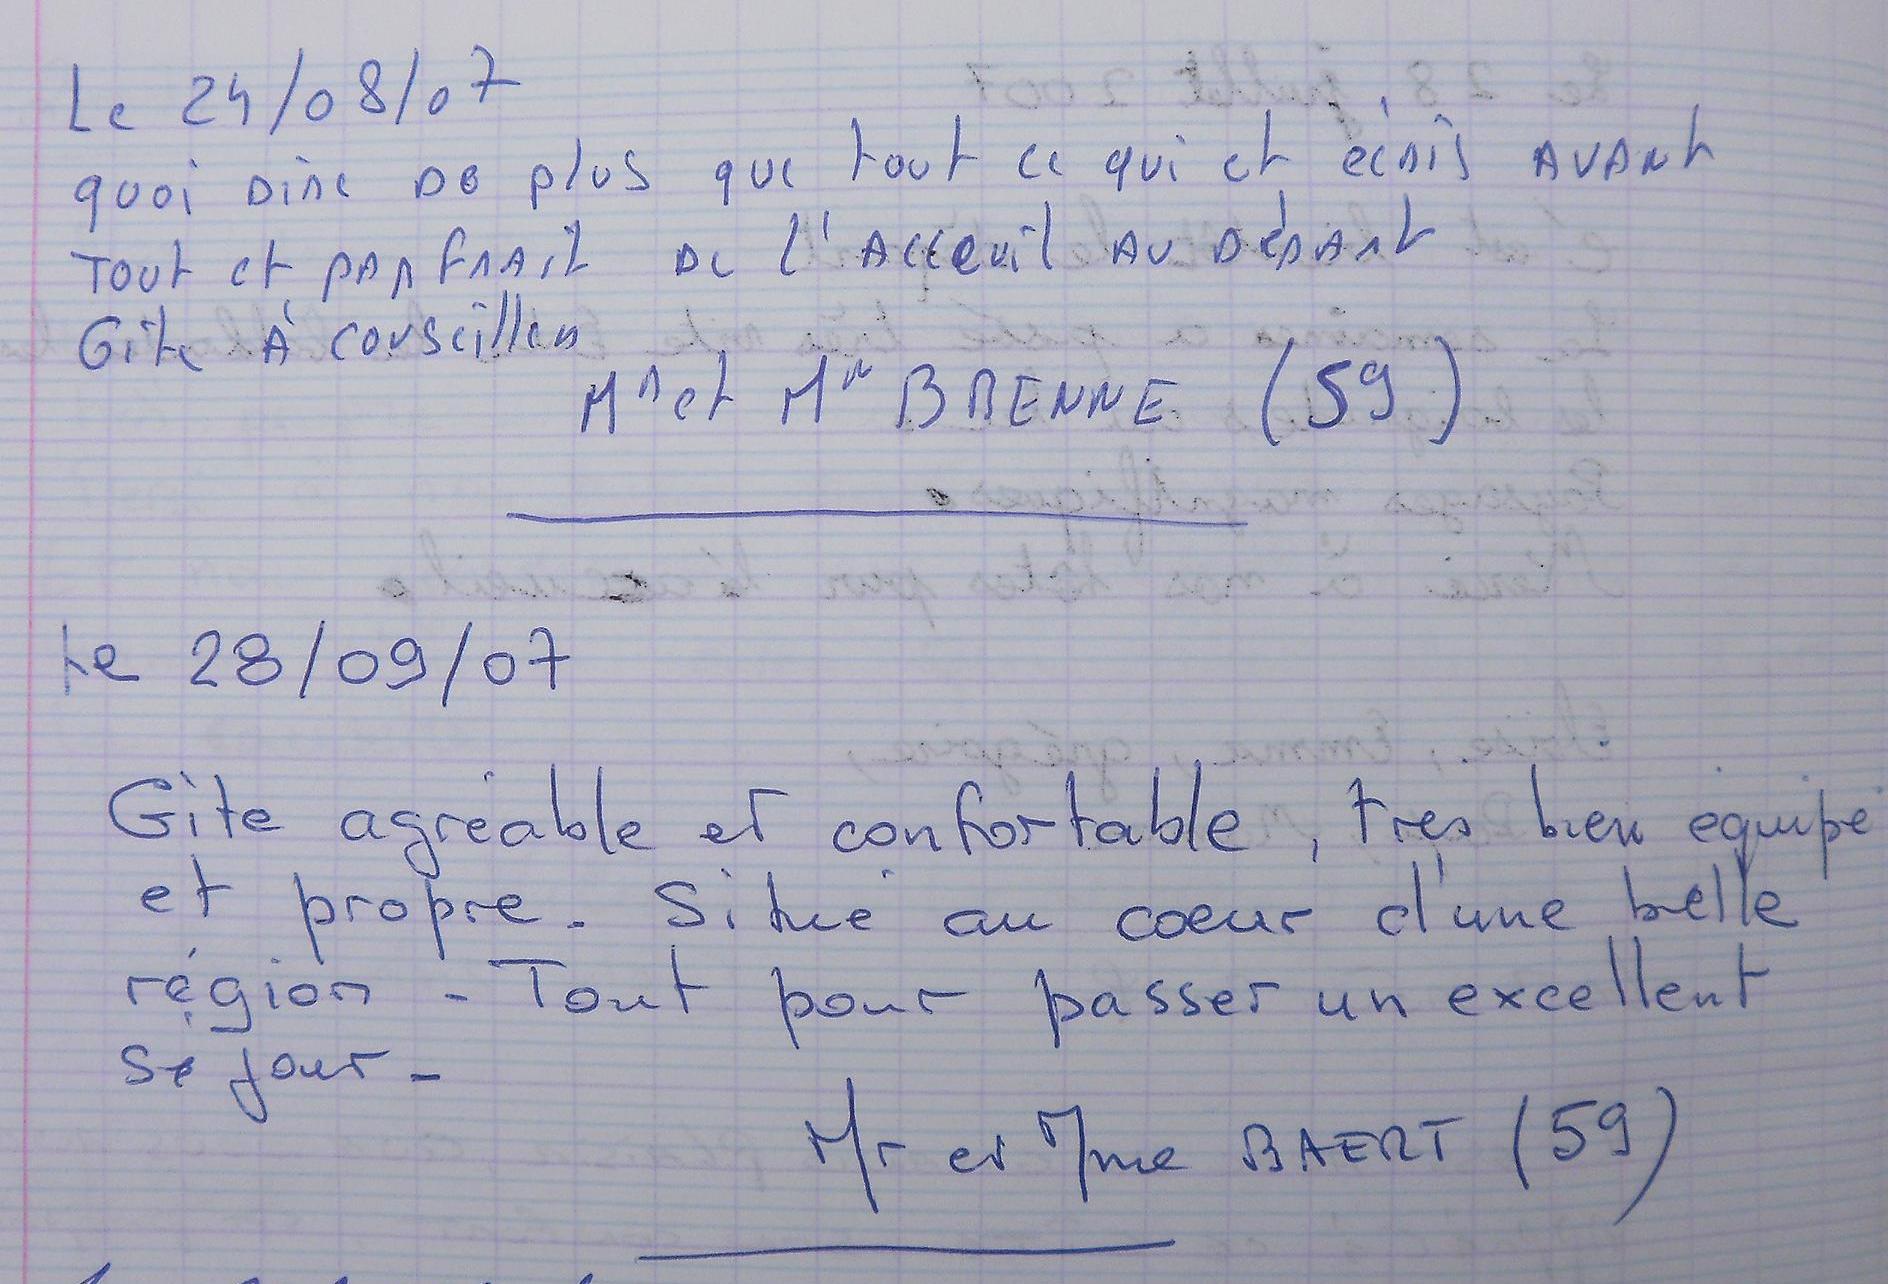 Le 24/08/07
quoi DIRE DE plus que tout ce qui et écris AVANT
TOUT et PARFRAIT DE l'ACCeuil AU DéPART
Gite À conseiller
Mr et Mm BRENNE (59)
Le 28/09/07
Gite agréable et confortable, très bien équipé
et propre. Situé au coeur d'une belle
région - Tout pour passer un excellent
séjour -
Mr et Mme BAERT (59)